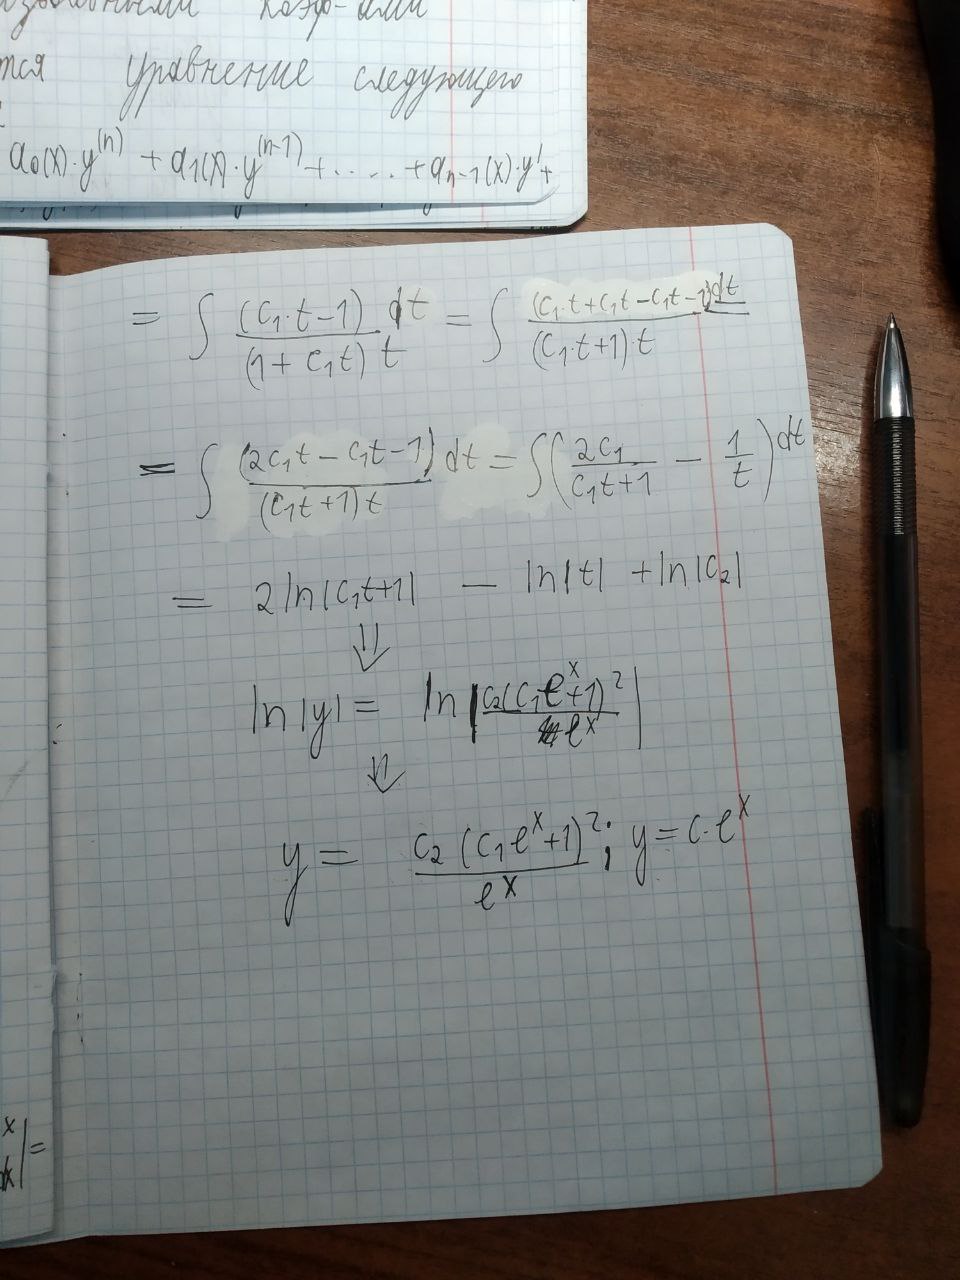 коэф-ами
тся уравнение следующего
a₀(x)·y⁽ⁿ⁾ + a₁(x)·y⁽ⁿ⁻¹⁾ + ..... + aₙ₋₁(x)·y' +
= ∫ (C₁·t − 1) dt / (1 + C₁t) t = ∫ (C₁·t + C₁t − C₁t − 1) dt / (C₁·t + 1)·t
= ∫ (2C₁t − C₁t − 1) / (C₁t + 1) t dt = ∫ (2C₁ / C₁t + 1 − 1 / t) dt
= 2 ln|C₁t + 1| − ln|t| + ln|C₂|
⇓
ln|y| = ln |C₂(C₁eˣ + 1)² / eˣ|
⇓
y = C₂ (C₁eˣ + 1)² / eˣ ; y = C·eˣ
x
| =